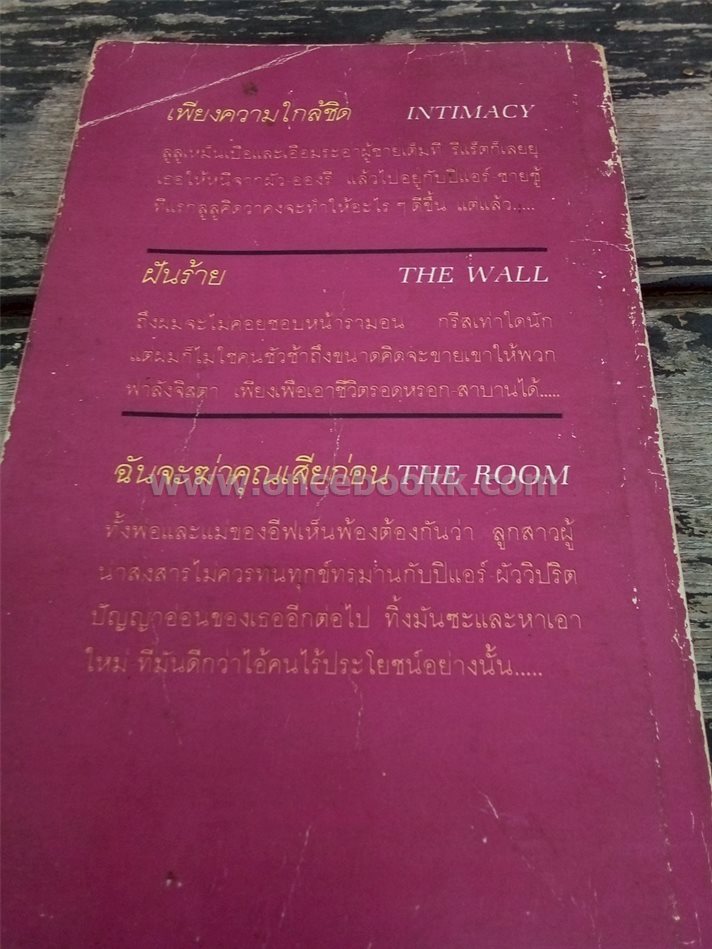 เพียงความใกล้ชิด INTIMACY
ลูลูเหม็นเบื่อและเอือมระอาผู้ชายเต็มที รีแร็ตก็เลยยุ
เธอให้หนีจากผัว-อองรี แล้วไปอยู่กับปิแอร์-ชายชู้
ทีแรกลูลูคิดว่าคงจะทำให้อะไร ๆ ดีขึ้น แต่แล้ว.....
ฝันร้าย THE WALL
ถึงผมจะไม่ค่อยชอบหน้ารามอน กรีสเท่าใดนัก
แต่ผมก็ไม่ใช่คนชั่วช้าถึงขนาดคิดจะขายเขาให้พวก
ฟาลังจิสตา เพียงเพื่อเอาชีวิตรอดหรอก-สาบานได้.....
ฉันจะฆ่าคุณเสียก่อน THE ROOM
www.oncebookk.com
ทั้งพ่อและแม่ของอีฟเห็นพ้องต้องกันว่า ลูกสาวผู้
น่าสงสารไม่ควรทนทุกข์ทรมานกับปิแอร์-ผัววิปริต
ปัญญาอ่อนของเธออีกต่อไป ทิ้งมันซะและหาเอา
ใหม่-ที่มันดีกว่าไอ้คนไร้ประโยชน์อย่างนั้น.....